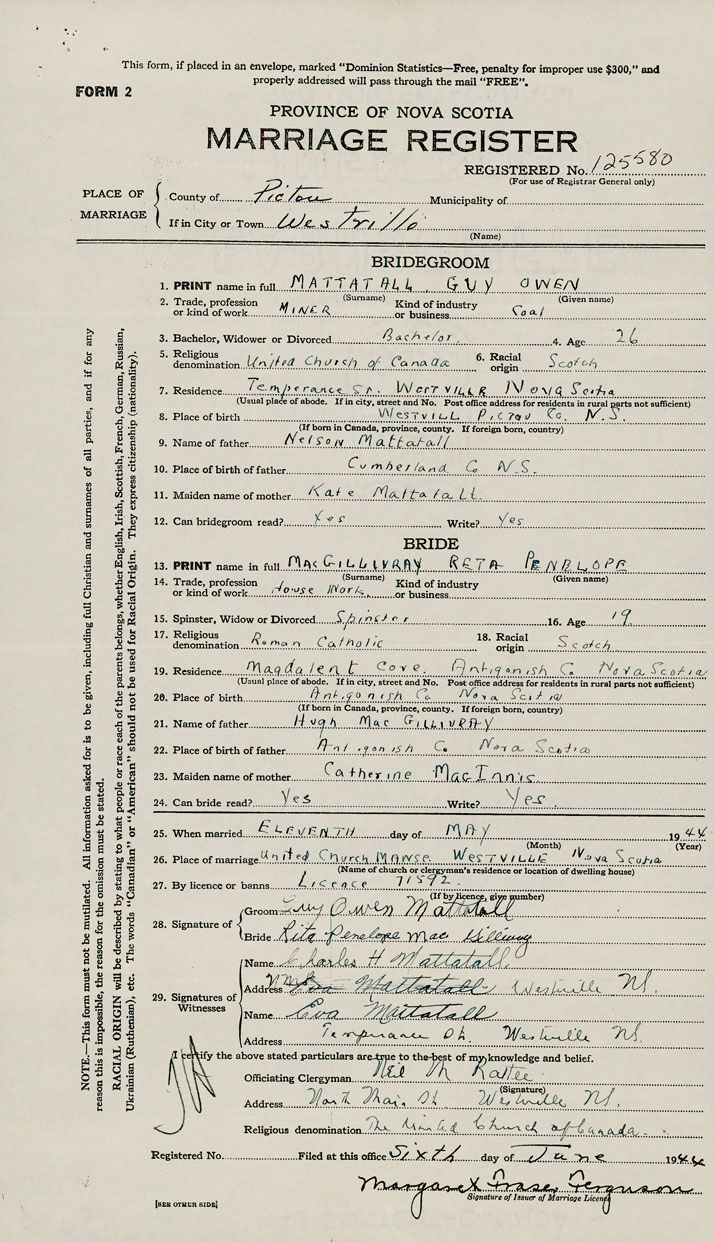 This form, if placed in an envelope, marked "Dominion Statistics—Free, penalty for improper use $300," and
properly addressed will pass through the mail "FREE".
FORM 2
PROVINCE OF NOVA SCOTIA
MARRIAGE REGISTER
REGISTERED No. 125580
(For use of Registrar General only)
PLACE OF MARRIAGE
County of Pictou Municipality of
If in City or Town Westville
(Name)
BRIDEGROOM
1. PRINT name in full MATTATALL GUY OWEN
(Surname) (Given name)
2. Trade, profession or kind of work MINER Kind of industry or business Coal
3. Bachelor, Widower or Divorced Bachelor 4. Age 26
5. Religious denomination United Church of Canada 6. Racial origin Scotch
7. Residence Temperance St. WESTVILLE NOVA Scotia
(Usual place of abode. If in city, street and No. Post office address for residents in rural parts not sufficient)
8. Place of birth WESTVILL PICTOU Co. N.S.
(If born in Canada, province, county. If foreign born, country)
9. Name of father Nelson Mattatall
10. Place of birth of father Cumberland Co N.S.
11. Maiden name of mother Kate Mattatall
12. Can bridegroom read? Yes Write? Yes
BRIDE
13. PRINT name in full MACGILLIVRAY RETA PENELOPE
(Surname) (Given name)
14. Trade, profession or kind of work House Work Kind of industry or business
15. Spinster, Widow or Divorced Spinster 16. Age 19
17. Religious denomination Roman Catholic 18. Racial origin Scotch
19. Residence Magdalent Cove Antigonish Co Nova Scotia
(Usual place of abode. If in city, street and No. Post office address for residents in rural parts not sufficient)
20. Place of birth Antigonish Co Nova Scotia
(If born in Canada, province, county. If foreign born, country)
21. Name of father Hugh Mac GILLIVRAY
22. Place of birth of father Antigonish Co Nova Scotia
23. Maiden name of mother Catherine MacInnis
24. Can bride read? Yes Write? Yes
25. When married ELEVENTH day of MAY 1944
(Month) (Year)
26. Place of marriage United Church MANSE WESTVILLE Nova Scotia
(Name of church or clergyman's residence or location of dwelling house)
27. By licence or banns Licence 71592
(If by licence, give number)
28. Signature of
Groom Guy Owen Mattatall
Bride Rita Penelope Mac Gillivray
29. Signatures of Witnesses
Name Charles H Mattatall
Address Eva Mattatall Westville NS.
Name Eva Mattatall
Address Temperance St. Westville NS.
I certify the above stated particulars are true to the best of my knowledge and belief.
Officiating Clergyman Neil M
(Signature)
Address North Main St Westville NS.
Religious denomination The United Church of Canada
Registered No. Filed at this office Sixth day of June 1944
Margaret Fraser Ferguson
Signature of Issuer of Marriage Licence
[SEE OTHER SIDE]
NOTE.—This form must not be mutilated. All information asked for is to be given, including full Christian and surnames of all parties, and if for any
reason this is impossible, the reason for the omission must be stated.
RACIAL ORIGIN will be described by stating to what people or race each of the parents belongs, whether English, Irish, Scottish, French, German, Russian,
Ukrainian (Ruthenian), etc. The words "Canadian" or "American" should not be used for Racial Origin. They express citizenship (nationality).